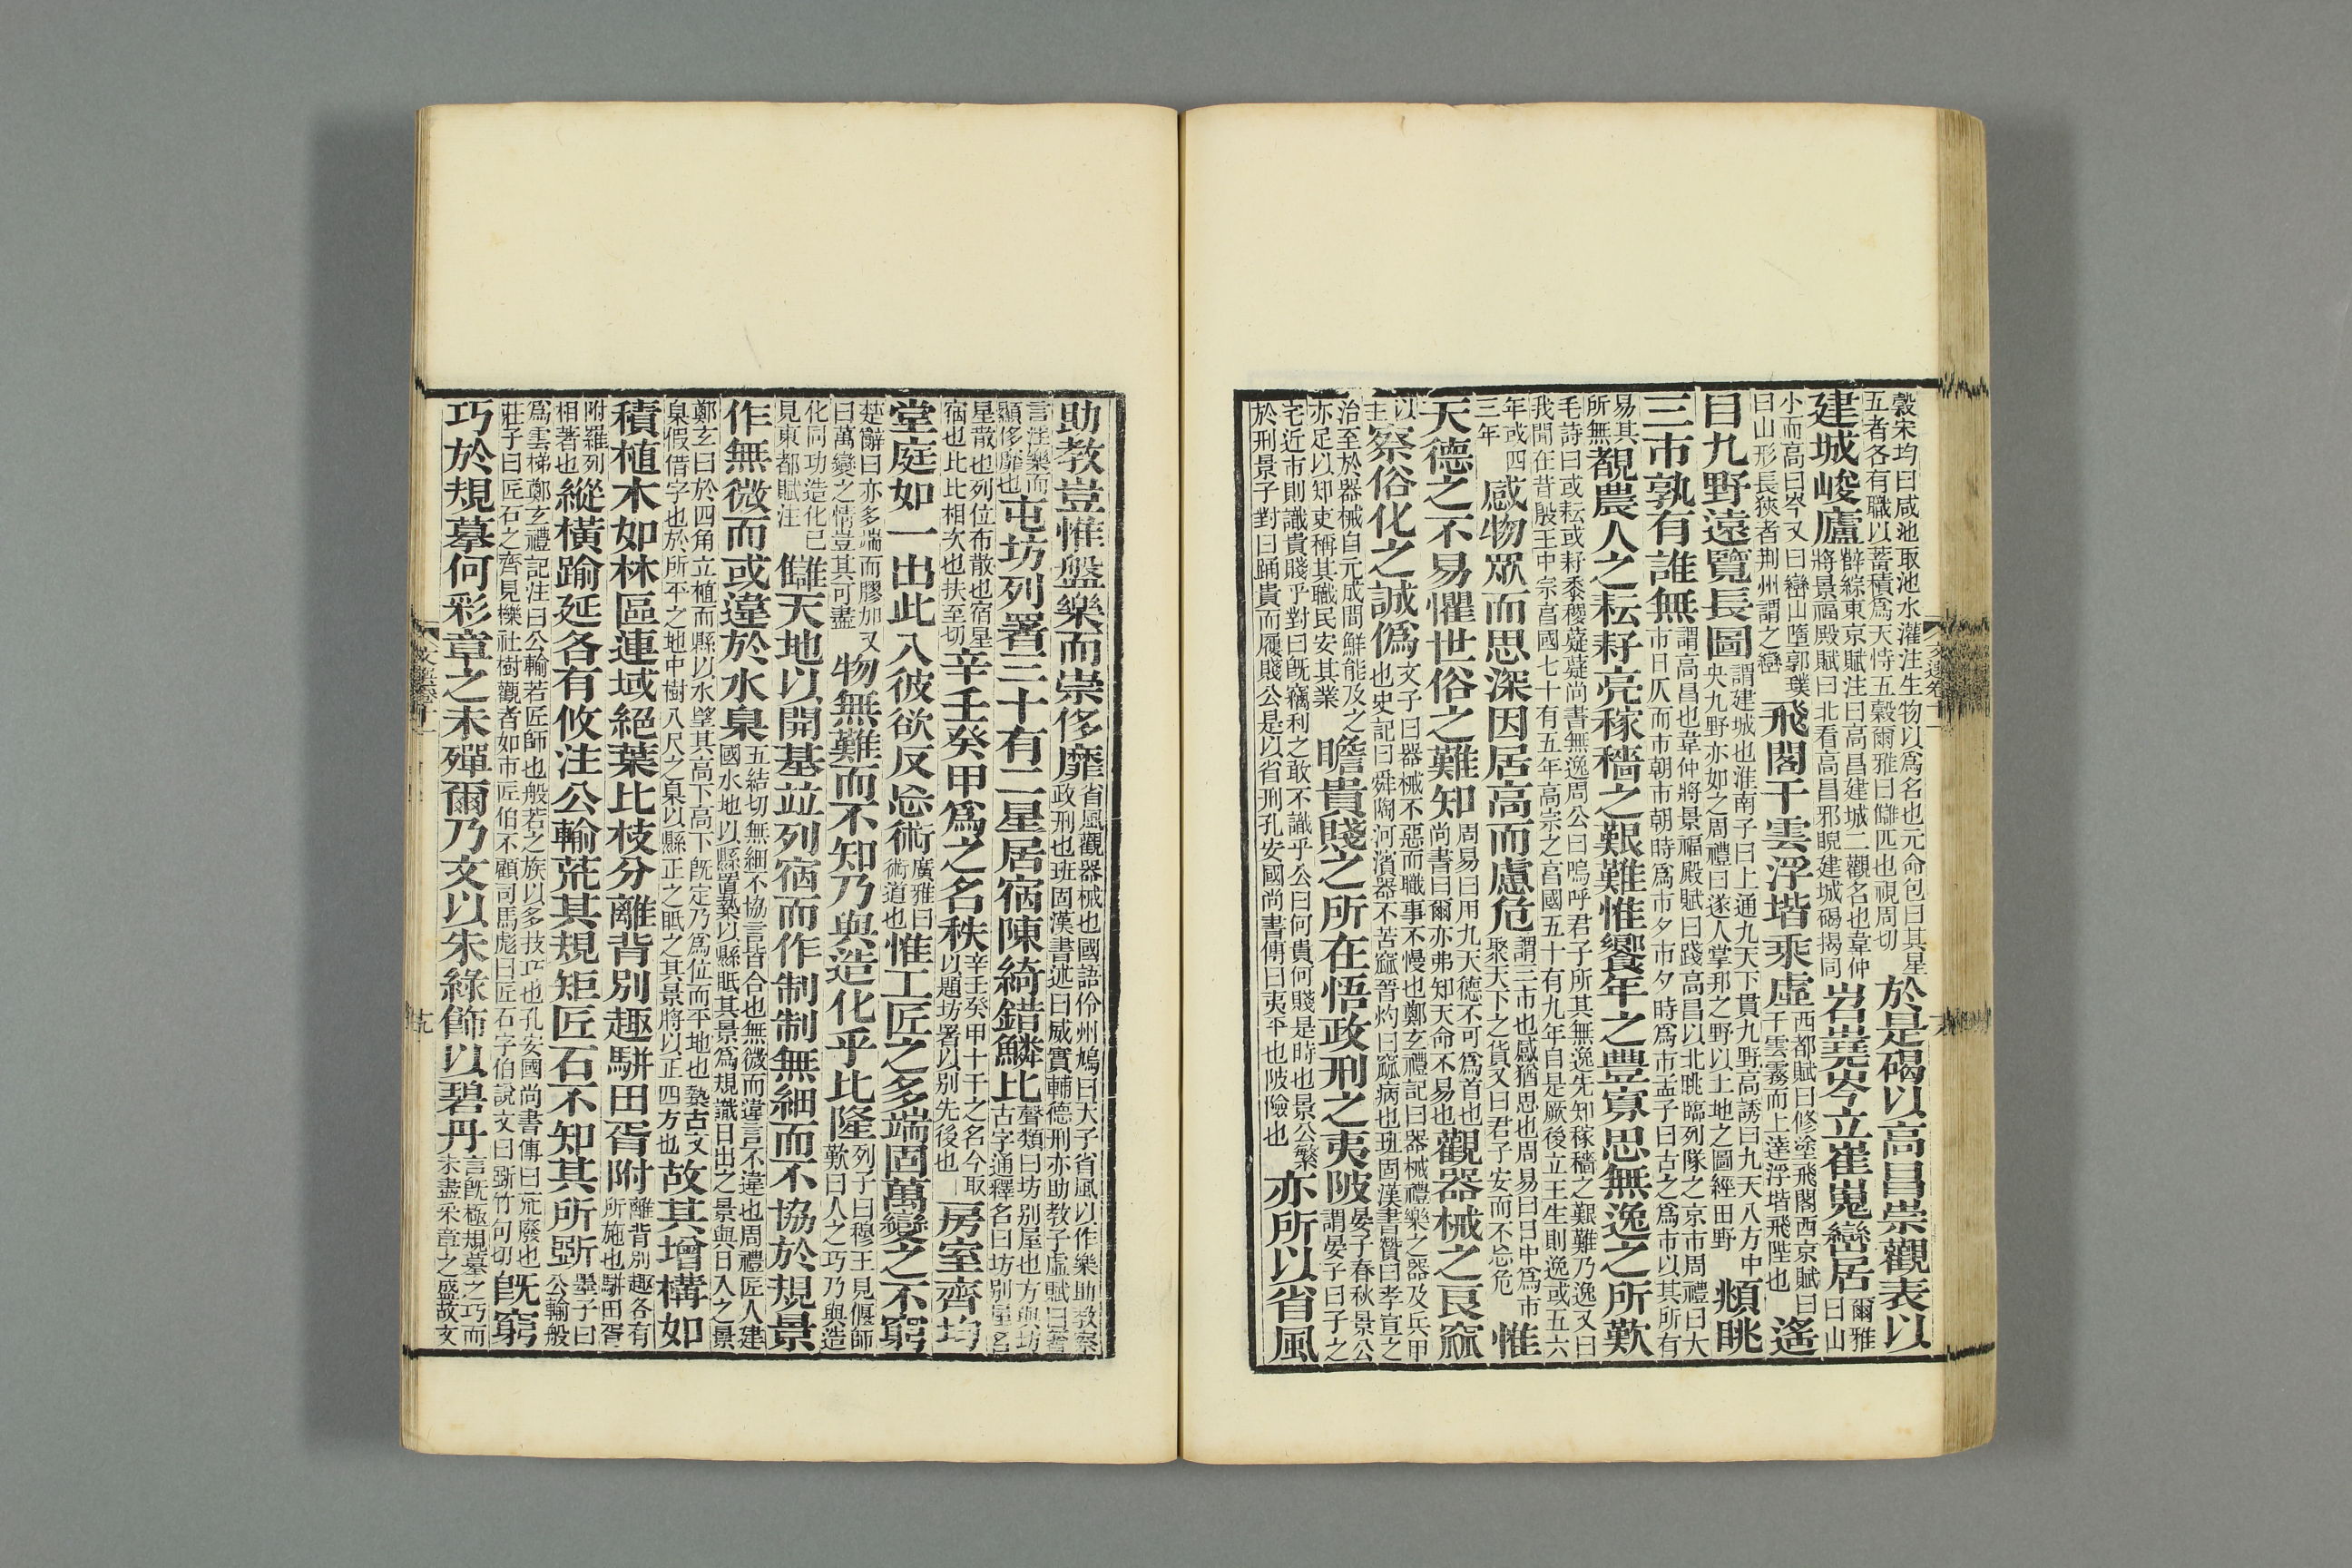 穀宋均曰咸池取池水灌注生物以爲名也元命包曰其星
五者各有職以蓄積爲天恃五穀爾雅曰讎匹也視周切
於是碣以高昌崇觀表以
建城峻廬
薛綜東京賦注曰高昌建城二觀名也韋仲
將景福殿賦曰北看高昌邪睨建城碣揭同
岧嶤岑立崔嵬巒居
爾雅
曰山
小而高曰岑又曰巒山墮郭璞
曰山形長狹者荆州謂之巒
飛閣干雲浮堦乘虛
西都賦曰修塗飛閣西京賦曰
干雲霧而上達浮堦飛陛也
遙
目九野遠覽長圖
謂建城也淮南子曰上通九天下貫九野高誘曰九天八方中
央九野亦如之周禮曰遂人掌邦之野以土地之圖經田野
頫眺
三市孰有誰無
謂高昌也韋仲將景福殿賦曰踐高昌以北眺臨列隊之京市周禮曰大
市日仄而市朝市朝時爲市夕市夕時爲市孟子曰古之爲市以其所有
易其
所無
覩農人之耘耔亮稼穡之艱難惟饗年之豐寡思無逸之所歎
毛詩曰或耘或耔黍稷薿薿尚書無逸周公曰嗚呼君子所其無逸先知稼穡之艱難乃逸又曰
我聞在昔殷王中宗享國七十有五年高宗之享國五十有九年自是厥後立王生則逸或五六
年或四
三年
感物眾而思深因居高而慮危
謂三市也感猶思也周易曰日中爲市
聚天下之貨又曰君子安而不忘危
惟
天德之不易懼世俗之難知
周易曰用九天德不可爲首也
尚書曰爾亦弗知天命不易也
觀器械之良窳
以
主
察俗化之誠僞
文子曰器械不惡而職事不慢也鄭玄禮記曰器械禮樂之器及兵甲
也史記曰舜陶河濱器不苦窳晉灼曰窳病也班固漢書贊曰孝宣之
治至於器械自元成間鮮能及之
亦足以知吏稱其職民安其業
瞻貴賤之所在悟政刑之夷陂
晏子春秋景公
謂晏子曰子之
宅近市則識貴賤乎對曰既竊利之敢不識乎公曰何貴何賤是時也景公繁
於刑景子對曰踊貴而履賤公是以省刑孔安國尚書傳曰夷平也陂險也
亦所以省風
助教豈惟盤樂而崇侈靡
省風觀器械也國語伶州鳩曰天子省風以作樂助教察
政刑也班固漢書述曰威實輔德刑亦助教子虛賦曰奢
言淫樂而
顯侈靡也
屯坊列署三十有二星居宿陳綺錯鱗比
聲類曰坊别屋也方與坊
古字通釋名曰坊别屋名
星散也列位布散也宿星
宿也比比相次也扶至切
辛壬癸甲爲之名秩
辛壬癸甲十干之名今取
以題坊署以别先後也
房室齊均
堂庭如一出此入彼欲反忘術
廣雅曰
術道也
惟工匠之多端固萬變之不窮
楚辭曰亦多端而膠加又
曰萬變之情豈其可盡
物無難而不知乃與造化乎比隆
列子曰穆王見偃師
歎曰人之巧乃與造
化同功造化已
見東都賦注
讎天地以開基竝列宿而作制制無細而不協於規景
作無微而或違於水臬
五結切無細不協言皆合也無微而違言不違也周禮匠人建
國水地以縣置槷以縣眂其景爲規識日出之景與日入之景
鄭玄曰於四角立植而縣以水望其高下高下既定乃爲位而平地也槷古文
臬假借字也於所平之地中樹八尺之臬以縣正之眂之其景將以正四方也
故其增構如
積植木如林區連域絕葉比枝分離背别趣駢田胥附
離背别趣各有
所施也駢田胥
附羅列
相著也
縱橫踰延各有攸注公輸荒其規矩匠石不知其所斲
墨子曰
公輸般
爲雲梯鄭玄禮記注曰公輸若匠師也般若之族以多技巧也孔安國尚書傳曰荒廢也
莊子曰匠石之齊見櫟社樹觀者如市匠伯不顧司馬彪曰匠石字伯說文曰斲竹句切
既窮
巧於規摹何彩章之未殫爾乃文以朱綠飾以碧丹
言既極規摹之巧而
未盡采章之盛故文